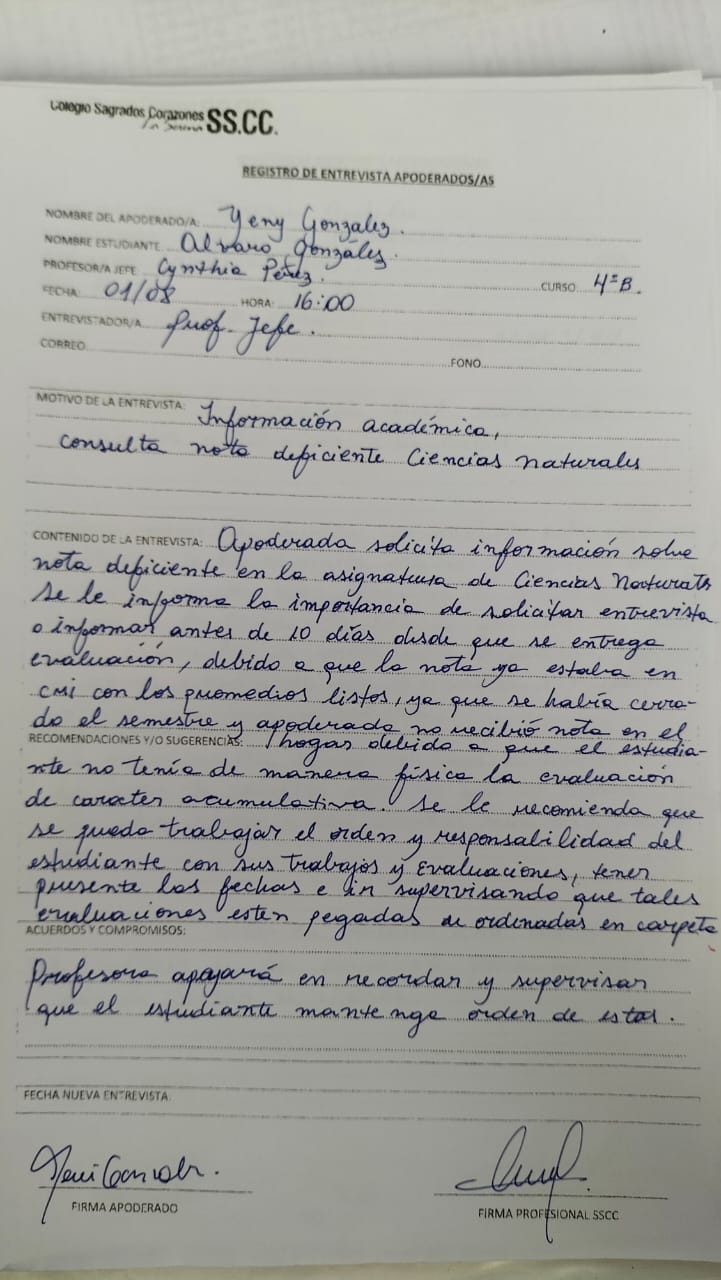 Colegio Sagrados Corazones
La Serena SS.CC.
REGISTRO DE ENTREVISTA APODERADOS/AS
NOMBRE DEL APODERADO/A: Yeny González.
NOMBRE ESTUDIANTE: Alvaro González.
PROFESOR/A JEFE: Cynthia Pérez. CURSO 4°B.
FECHA: 01/08 HORA: 16:00
ENTREVISTADOR/A: Prof. Jefe.
CORREO: FONO
MOTIVO DE LA ENTREVISTA: Información académica,
consulta nota deficiente Ciencias Naturales
CONTENIDO DE LA ENTREVISTA: Apoderada solicita información sobre
nota deficiente en la asignatura de Ciencias Naturals
Se le informa la importancia de solicitar entrevista
o informar antes de 10 días desde que se entrega
evaluación, debido a que la nota ya estaba en
CMI con los promedios listos, ya que se había cerra-
do el semestre y apoderada no recibió nota en el
RECOMENDACIONES Y/O SUGERENCIAS: hogar debido a que el estudia-
nte no tenía de manera física la evaluación
de caracter acumulativa. Se le recomienda que
se pueda trabajar el orden y responsabilidad del
estudiante con sus trabajos y evaluaciones, tener
presente las fechas e ir supervisando que tales
evaluaciones esten pegadas u ordenadas en carpeta
ACUERDOS Y COMPROMISOS:
Profesora apoyará en recordar y supervisar
que el estudiante mantenga orden de estas.
FECHA NUEVA ENTREVISTA:
FIRMA APODERADO
FIRMA PROFESIONAL SSCC